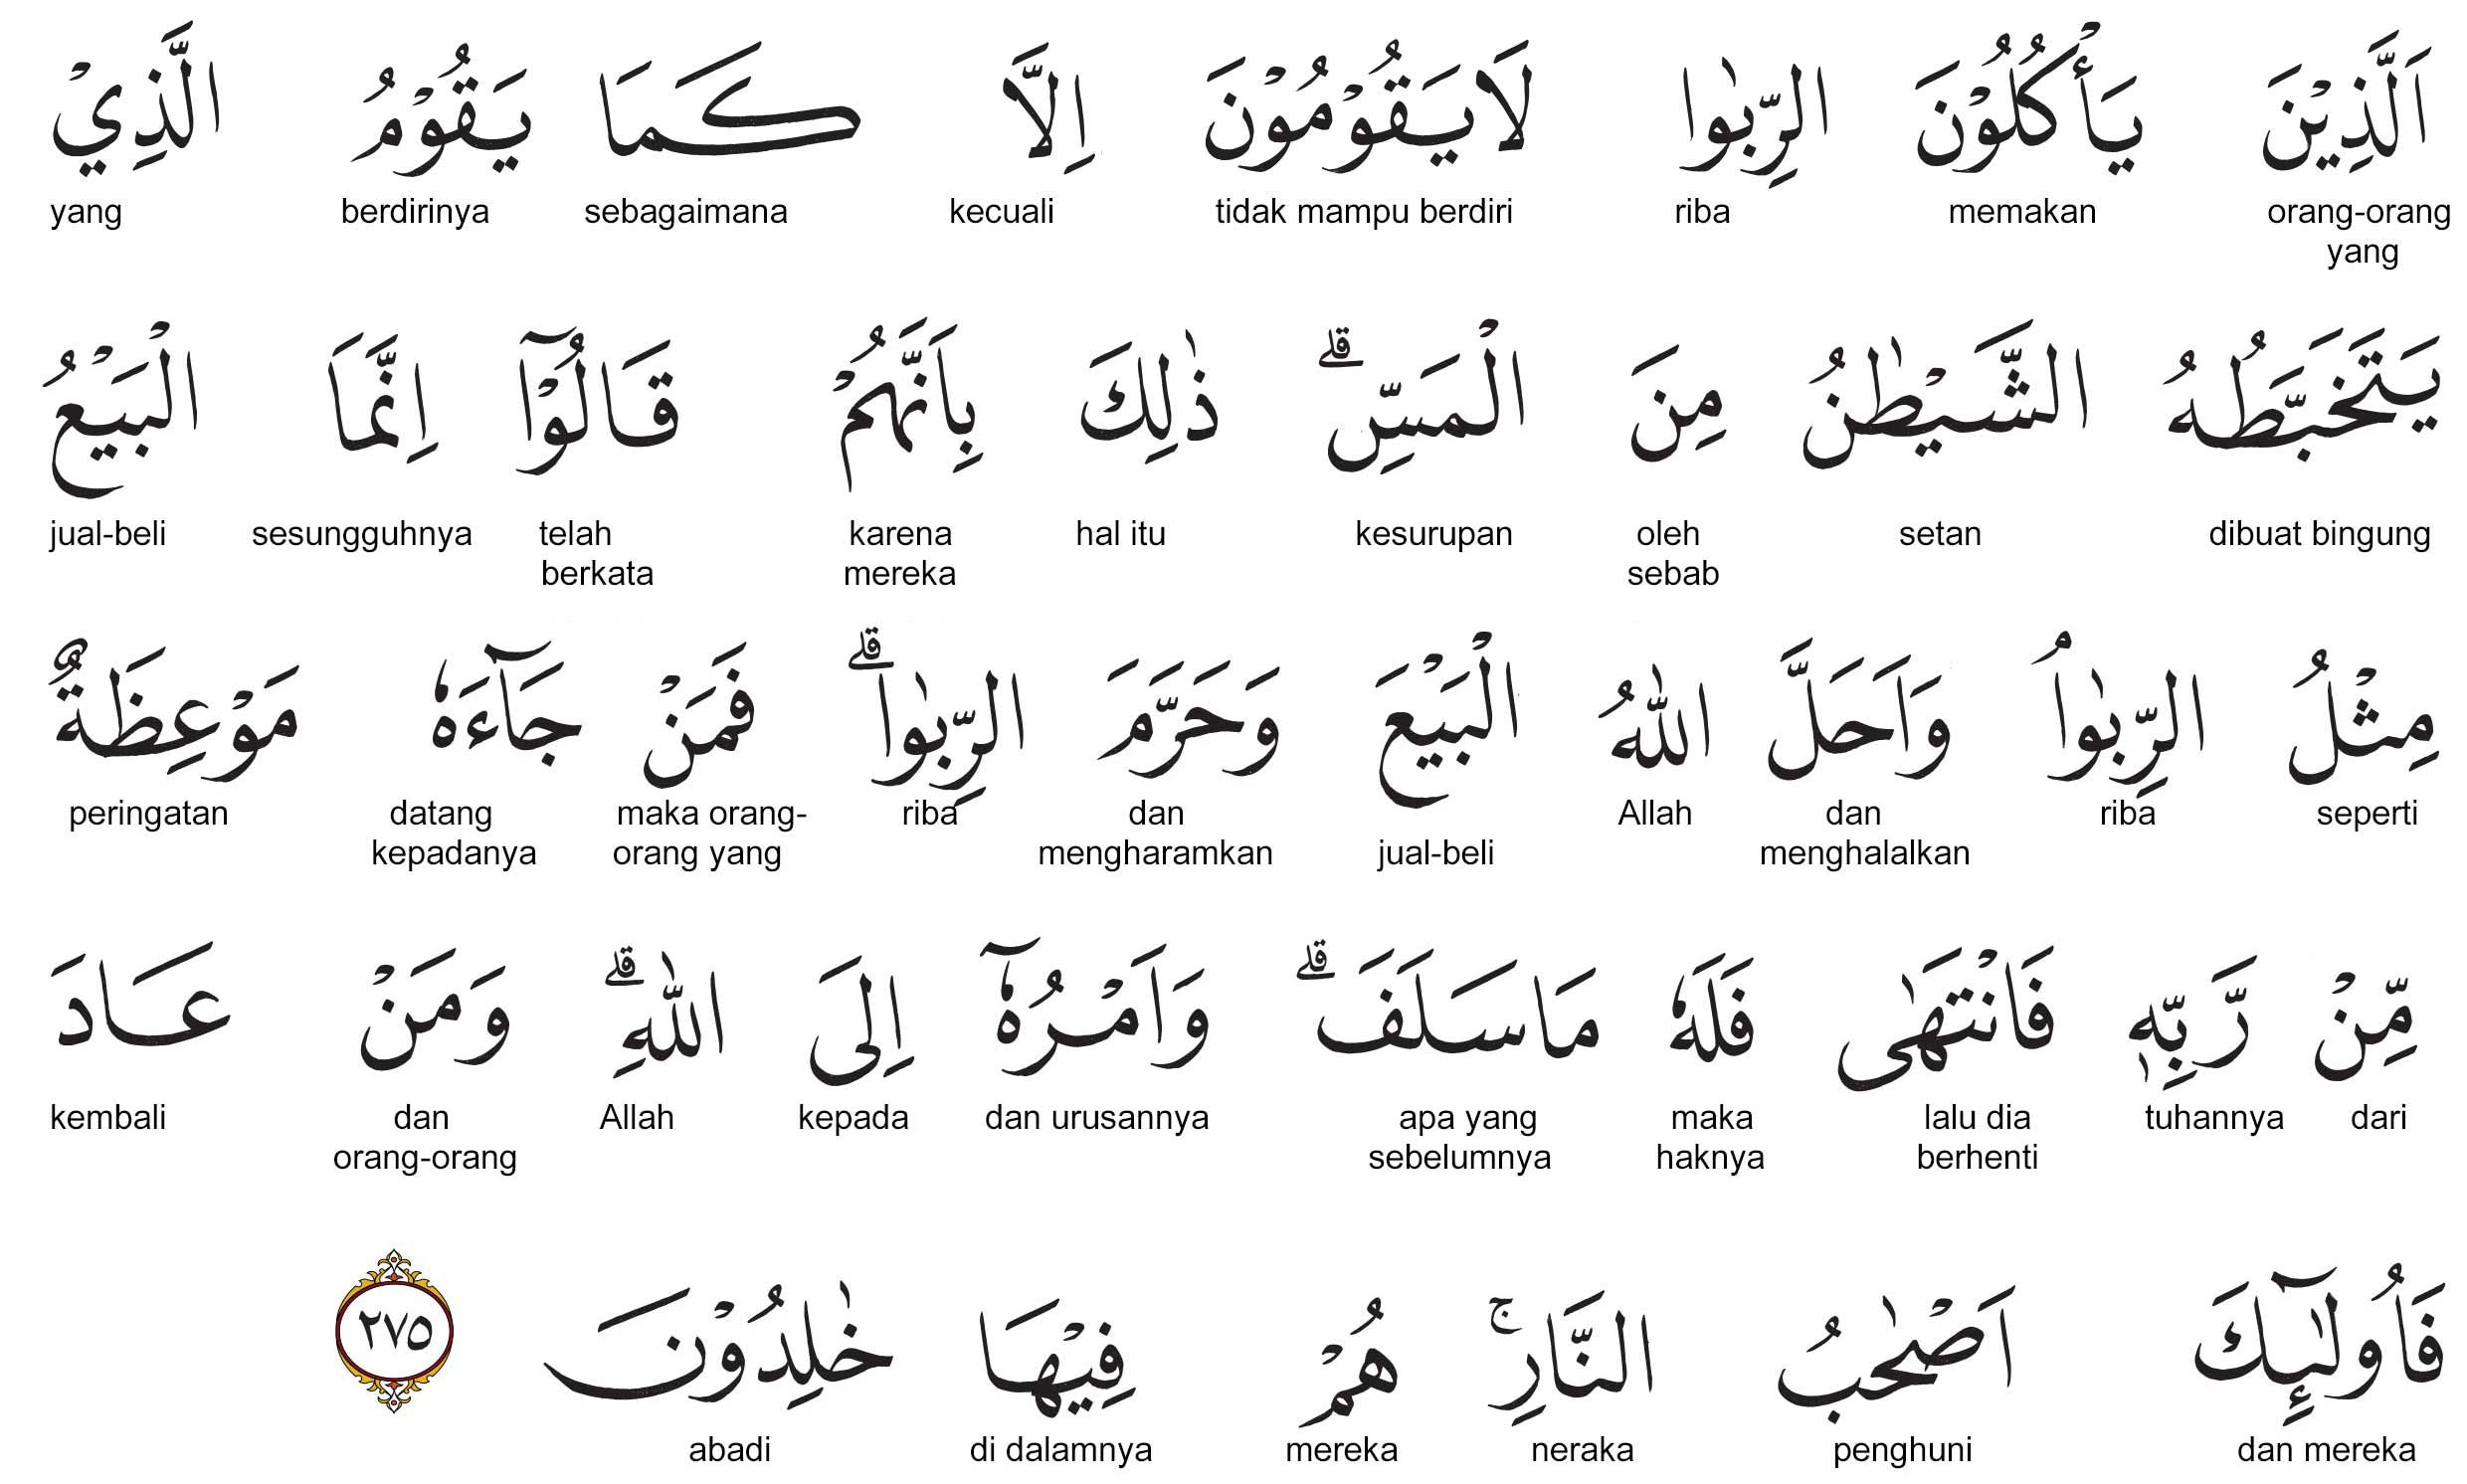 اَلَّذِيْنَ يَأْكُلُوْنَ الرِّبٰوا لَا يَقُوْمُوْنَ اِلَّا كَمَا يَقُوْمُ الَّذِيْ
orang-orang yang memakan riba tidak mampu berdiri kecuali sebagaimana berdirinya yang
يَتَخَبَّطُهُ الشَّيْطٰنُ مِنَ الْمَسِّۗ ذٰلِكَ بِاَنَّهُمْ قَالُوْٓا اِنَّمَا الْبَيْعُ
dibuat bingung setan oleh sebab kesurupan hal itu karena mereka telah berkata sesungguhnya jual-beli
مِثْلُ الرِّبٰواُ وَاَحَلَّ اللّٰهُ الْبَيْعَ وَحَرَّمَ الرِّبٰواۗ فَمَنْ جَاۤءَهٗ مَوْعِظَةٌ
seperti riba dan menghalalkan Allah jual-beli dan mengharamkan riba maka orang-orang yang datang kepadanya peringatan
مِّنْ رَّبِّهٖ فَانْتَهٰى فَلَهٗ مَا سَلَفَۗ وَاَمْرُهٗٓ اِلَى اللّٰهِۗ وَمَنْ عَادَ
dari tuhannya lalu dia berhenti maka haknya apa yang sebelumnya dan urusannya kepada Allah dan orang-orang kembali
فَاُولٰۤىِٕكَ اَصْحٰبُ النَّارِۚ هُمْ فِيْهَا خٰلِدُوْنَ ٢٧٥
dan mereka penghuni neraka mereka di dalamnya abadi